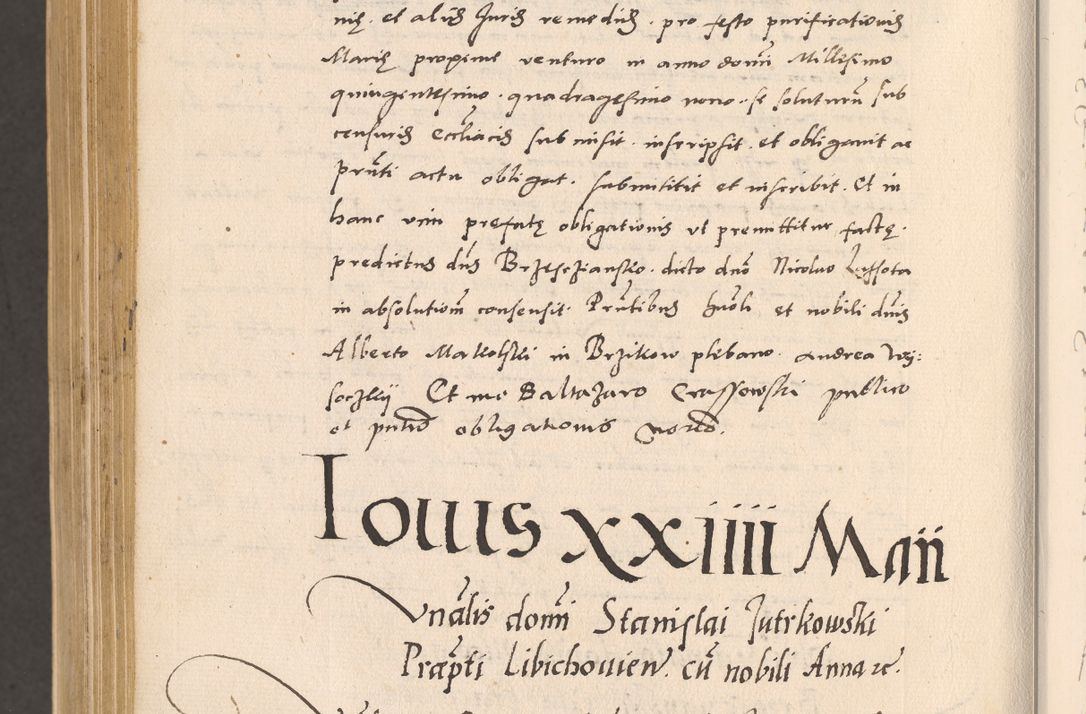 nis. et aliis Juris remediis. pro festo purificationis
Marię proxime venturo in anno domini Millesimo
quingentesimo. quadragesimo nono. se soluturum sub
censuris eccliacis submisit. inscripsit. et obligavit ac
pnti actu obligat. submittit et inscribit. Et in
hanc vim prefatę obligationis ut premittitur factę.
predictus dns Brzescziansko. dicto dno Nicolao
in absolutiom consensit. Pntibus hnoli et nobili dnis
Alberto Makolski in Brzikow plebano. andrea Voj:
soczkij Et me Baltazaro Crassowski publico
et pntis obligationis notario.
Iouis XXiiii Maii
Vnalis domi Stanislai Jutrkowski
Praepti Libichouien. cu nobili Anna rc.